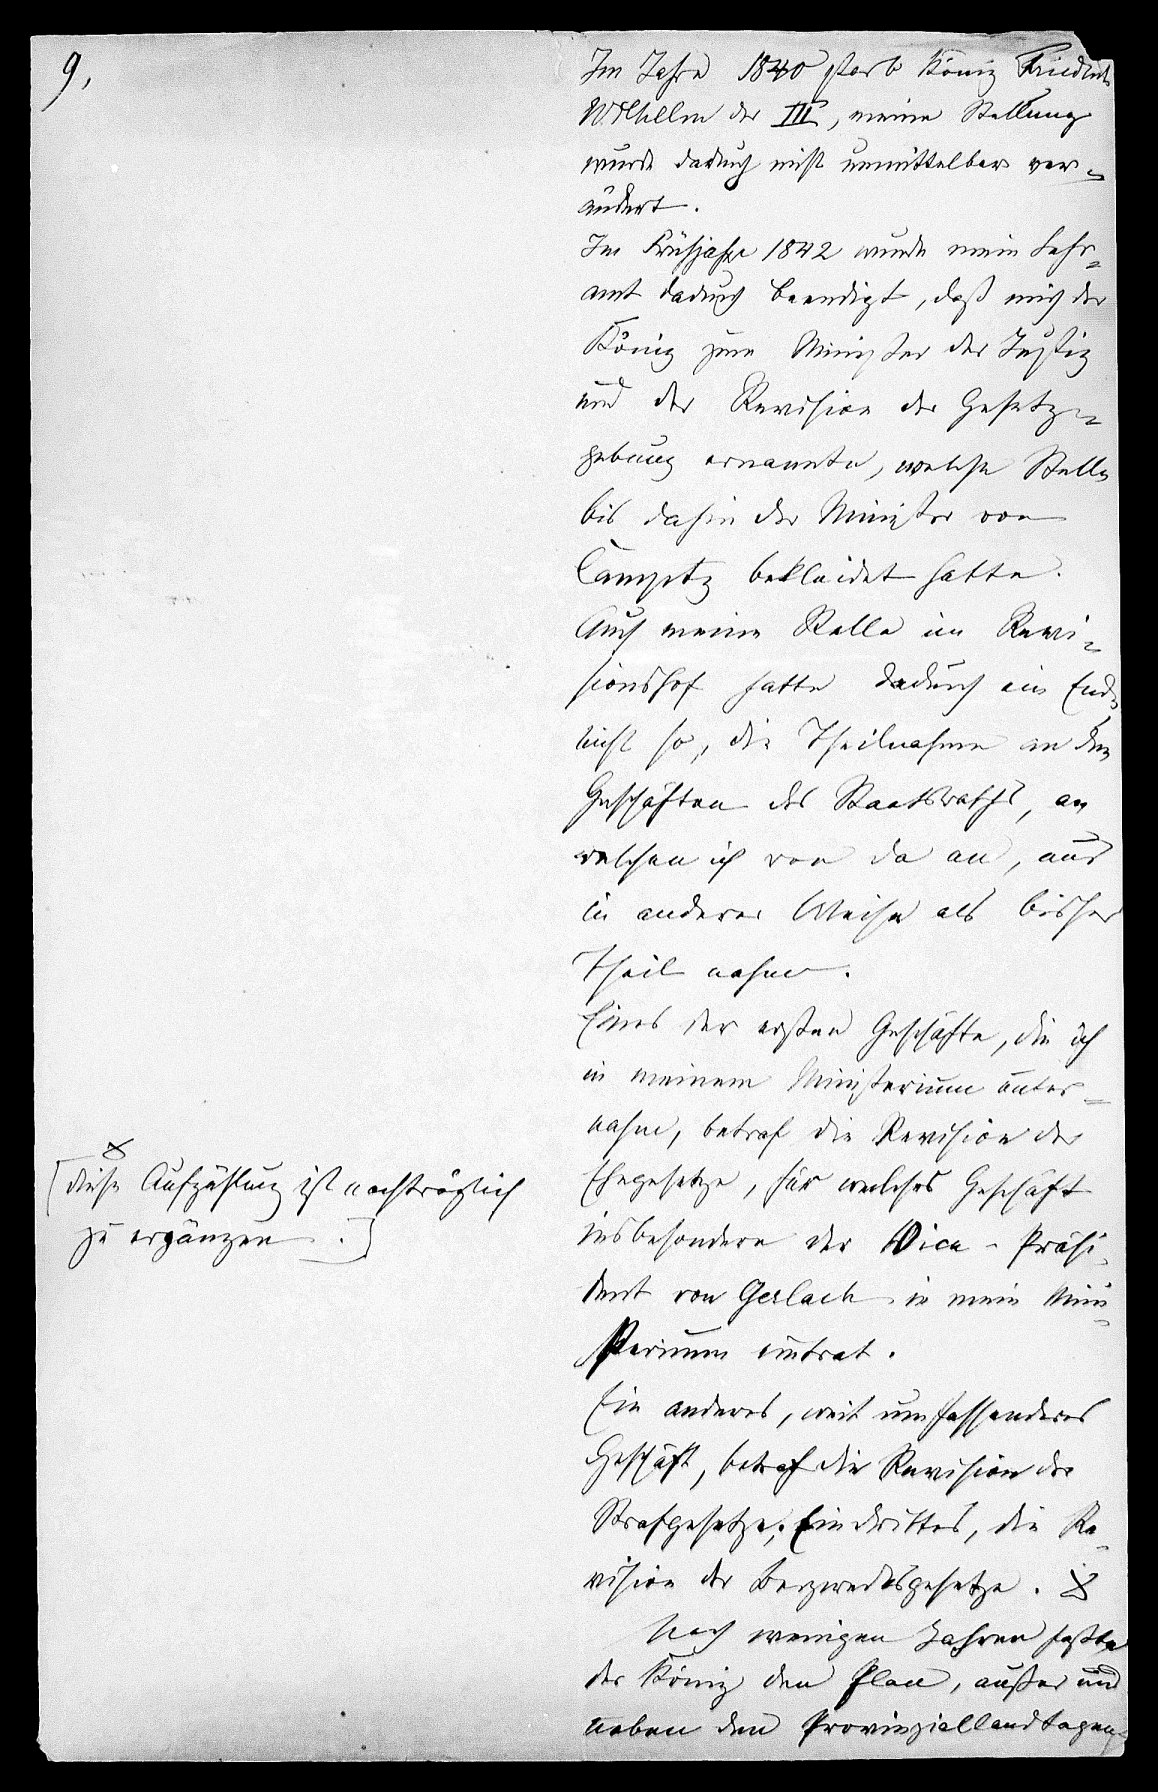 9,
Im Jahre 1840 starb König Friedrich
Wilhelm der III, meine Stellung
wurde dadurch nicht unmittelbar ver=
ändert.
Im Frühjahr 1842 wurde mein Lehr=
amt dadurch beendigt, daß mich der
König zum Minister der Justiz
und der Revision der Gesetz=
gebung ernannte, welche Stelle
bis dahin der Minister von
Camptz bekleidet hatte.
Auch meine Stelle im Revi=
sionshof hatte dadurch ein Ende,
nicht so, die Theilnahme an den
Geschäften des Staatsraths, an
welchen ich von da an, nur
in anderer Weise als bisher
Theil nahm.
Eines der ersten Geschäfte, die ich
in meinem Ministerium unter=
nahm, betraf die Revision der
Ehegesetze, für welches Geschäft
insbesondere der Vice-Präsi=
dent von Gerlach in mein Mini=
sterium eintrat.
Ein anderes, weit umfassenderes
Geschäft, betraf die Revision der
Strafgesetze; Ein drittes, die Re=
vision der Bergwerksgesetze.
Nach wenigen Jahren faßte
der König den Plan, außer und
neben den Provinziallandtagen
[diese Aufzählung ist nachträglich
zu ergänzen.]